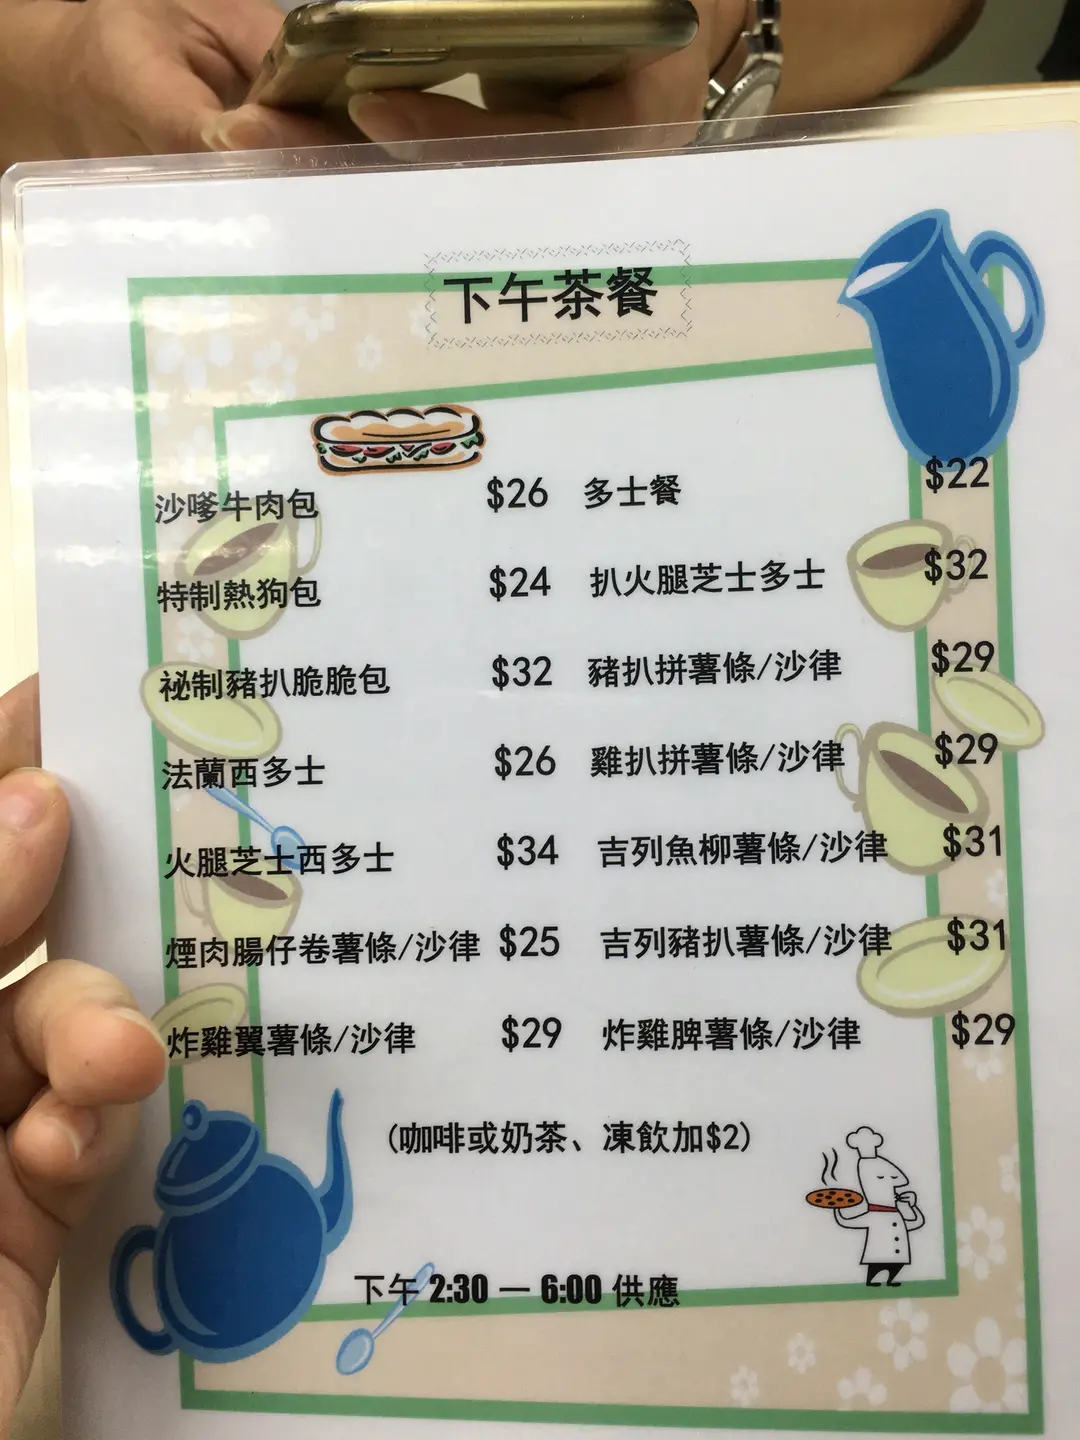 下午茶餐
沙嗲牛肉包 $26 多士餐 $22
特制熱狗包 $24 扒火腿芝士多士 $32
祕制豬扒脆脆包 $32 豬扒拼薯條/沙律 $29
法蘭西多士 $26 雞扒拼薯條/沙律 $29
火腿芝士西多士 $34 吉列魚柳薯條/沙律 $31
煙肉腸仔卷薯條/沙律 $25 吉列豬扒薯條/沙律 $31
炸雞翼薯條/沙律 $29 炸雞脾薯條/沙律 $29
(咖啡或奶茶、凍飲加$2)
下午 2:30 — 6:00 供應